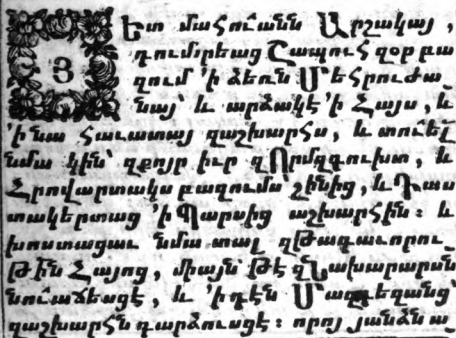 Յետ մահուանն Արշակայ,
գումրեաց Շապուհ զօր բա
զում ՚ի ձեռն Մեհրուժա
նայ՝ և արձակէ ՚ի Հայս, և
՚ի նա հաւատայ զաշխարհս, և տուեալ
նմա կին՝ զքոյր իւր զՈրմզդուխտ, և
Հրովարտակս բազումս շինից, և Դաս
տակերտաց ՚ի Պարսից աշխարհին: և
խոստացաւ նմա տալ զԹագաւորու
Թին Հայոց, միայն Թէ զՆախարարսն
նուաճեսցէ, և ՚ի դէն Մազդեզանց՝
զաշխարհն դարձուսցէ: որոյ յանձն ա